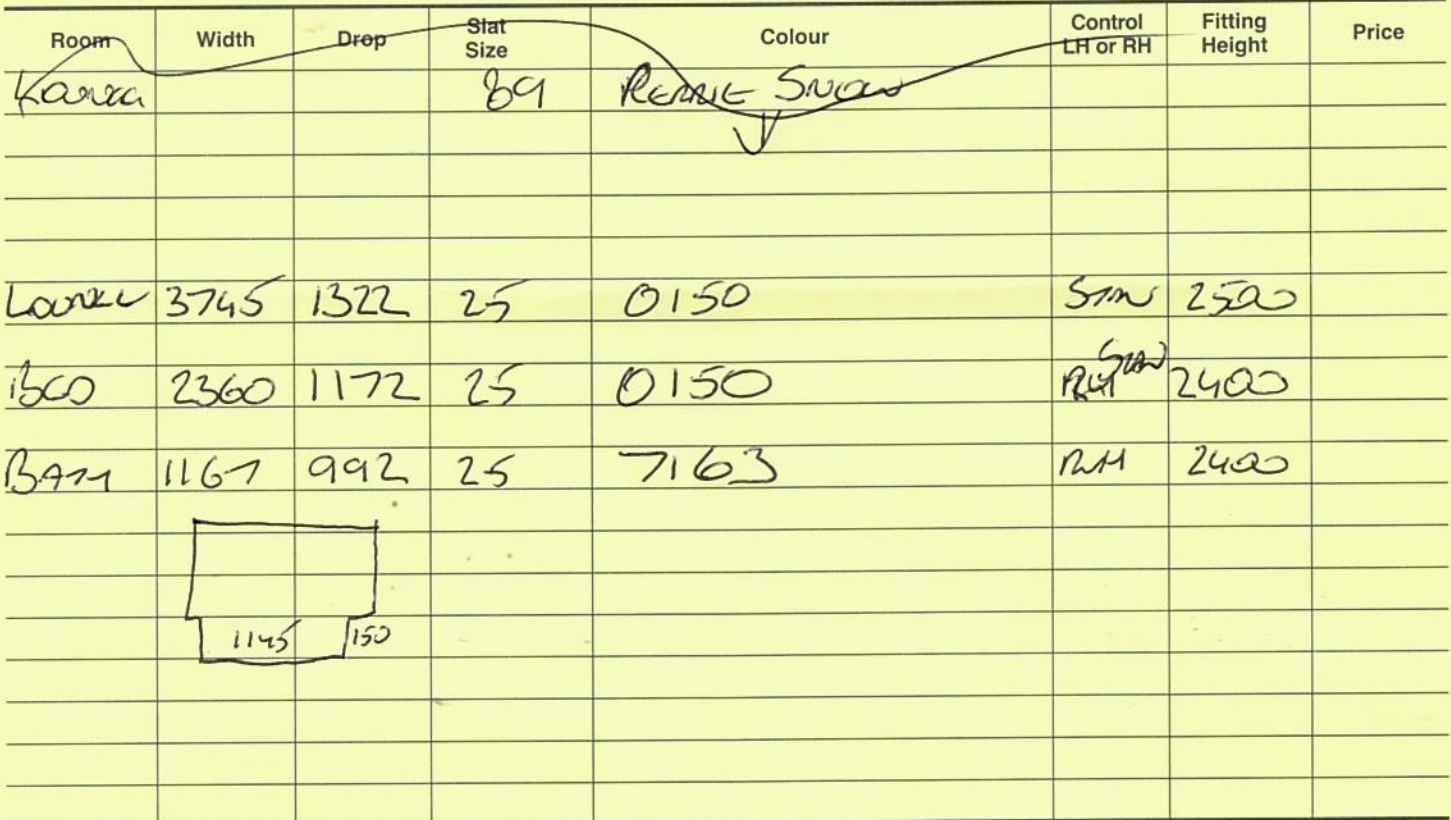 Room Width Drop Slat Size Colour Control LH or RH Fitting Height Price
89 Snow
3745 1322 25 0150 2500
2360 1172 25 0150 RH 2400
1167 992 25 7163 RH 2400
1145 150